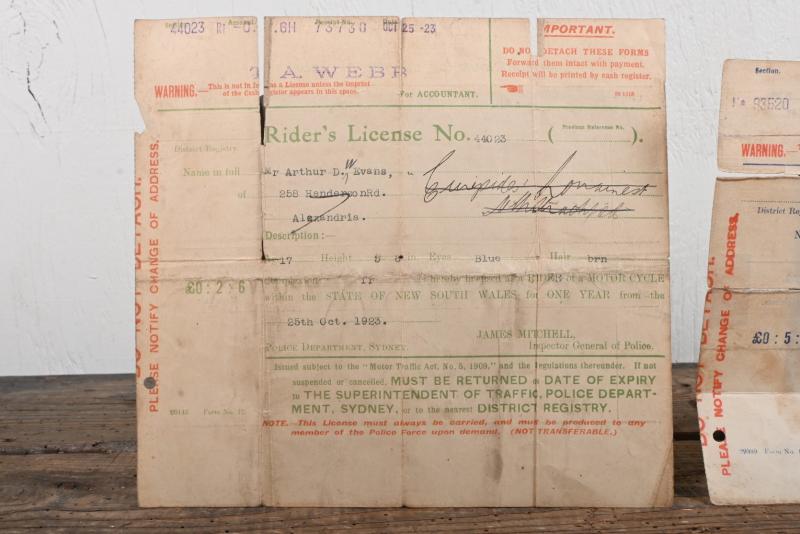 Section Amount Receipt No. Date
44023 .GH 73730 OCT 25 -23
T. A. WEBB
WARNING.—This is not in force as a License unless the imprint
of the Cash Register appears in this space.
For ACCOUNTANT.
IMPORTANT.
DO NOT DETACH THESE FORMS
Forward them intact with payment.
Receipt will be printed by cash register.
Rider's License No. 44023 ( Previous Reference No. ).
District Registry
Name in full Mr Arthur D. W Evans,
of 258 Henderson Rd.
Alexandria.
Description:—
17 Height 5 8 in. Eyes Blue Hair brn
Complexion fr is hereby licensed as a RIDER of a MOTOR CYCLE
£0 : 2 : 6
within the STATE OF NEW SOUTH WALES for ONE YEAR from the
25th Oct. 1923.
JAMES MITCHELL,
POLICE DEPARTMENT, SYDNEY. Inspector General of Police.
Issued subject to the "Motor Traffic Act, No. 5, 1909," and the Regulations thereunder. If not
suspended or cancelled, MUST BE RETURNED on DATE OF EXPIRY
to THE SUPERINTENDENT OF TRAFFIC, POLICE DEPART-
MENT, SYDNEY, or to the nearest DISTRICT REGISTRY.
Form No.
NOTE.—This License must always be carried, and must be produced to any
member of the Police Force upon demand. (NOT TRANSFERABLE.)
DO NOT DETACH.
PLEASE NOTIFY CHANGE OF ADDRESS.
Section.
93520
WARNING.—
District Reg
£0 : 5 :
Form No.
DO NOT DETACH.
PLEASE NOTIFY CHANGE OF ADDRESS.